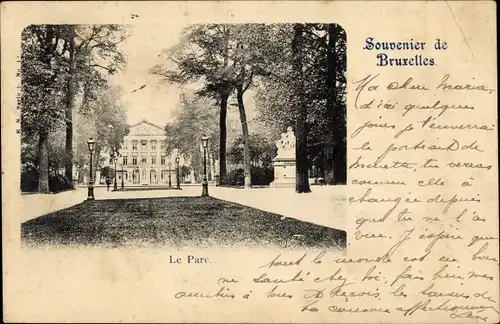 Souvenier de
Bruxelles.
Ma cher Maria,
d'ici quelques
jours je t'enverrai
le portrait de
verras
comme elle a
changée depuis
que tu ne l'as
vue. J'espère que
tout le monde est en bon
ne santé chez toi, fais bien mes
amitiés à tous et reçois, les baisers de
ta cousine affectionnée
Le Parc.